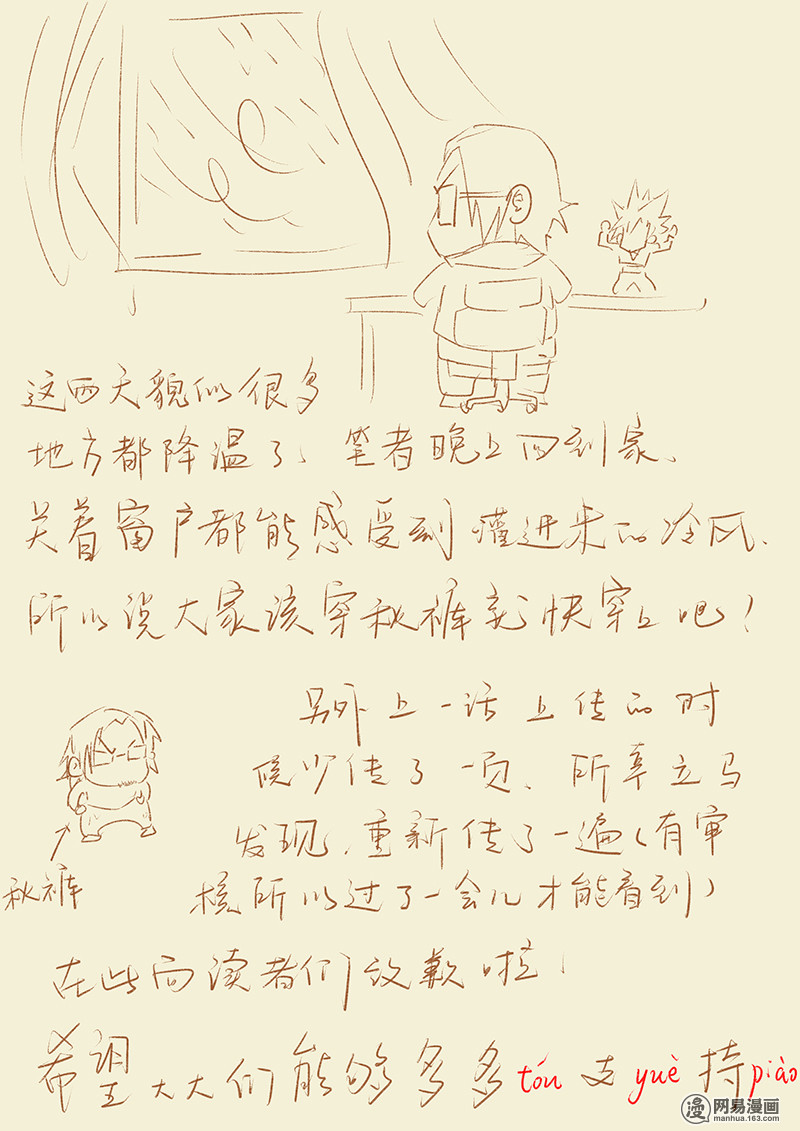 这两天貌似很多
地方都降温了、笔者晚上回到家、
关着窗户都能感受到灌进来的冷风、
所以说大家该穿秋裤就快穿上吧！
另外上一话上传的时
候少传了一页、所幸立马
发现、重新传了一遍(有审
核所以过了一会儿才能看到)
秋裤
在此向读者们致歉啦！
希望大大们能够多多tóu支yuè持piào
漫 网易漫画
manhua.163.com